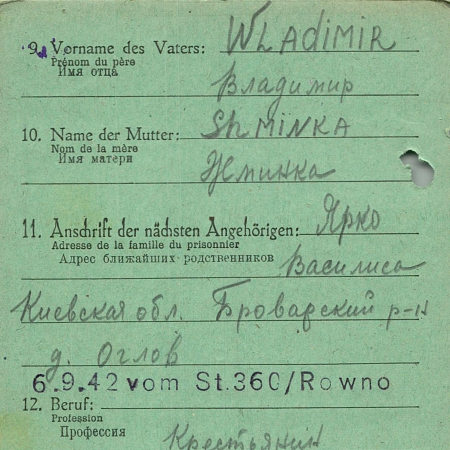 9. Vorname des Vaters: WLADIMIR
Prénom du père
Имя отца
Владимир
10. Name der Mutter: ShMINKA
Nom de la mère
Имя матери
Жминка
11. Anschrift der nächsten Angehörigen: Ярко
Adresse de la famille du prisonnier
Адрес ближайших родственников Василиса
Киевская обл. Броварский р-н
д. Оглов
6.9.42 vom St.360/Rowno
12. Beruf:
Profession
Профессия
Крестьянин